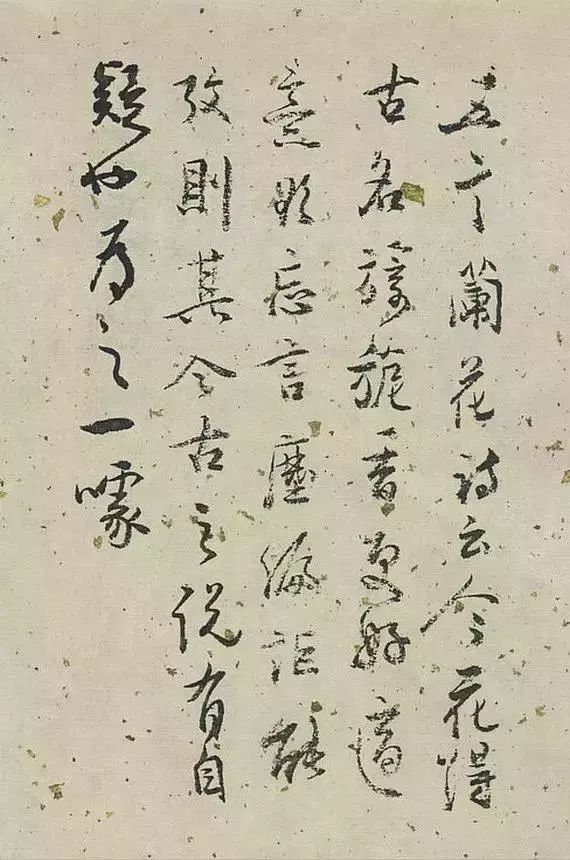 五言蘭花詩云今花得
古名旖旎香更好適
意欲忘言塵編詎能
攷則其今古之説有自
疑也為之一噱